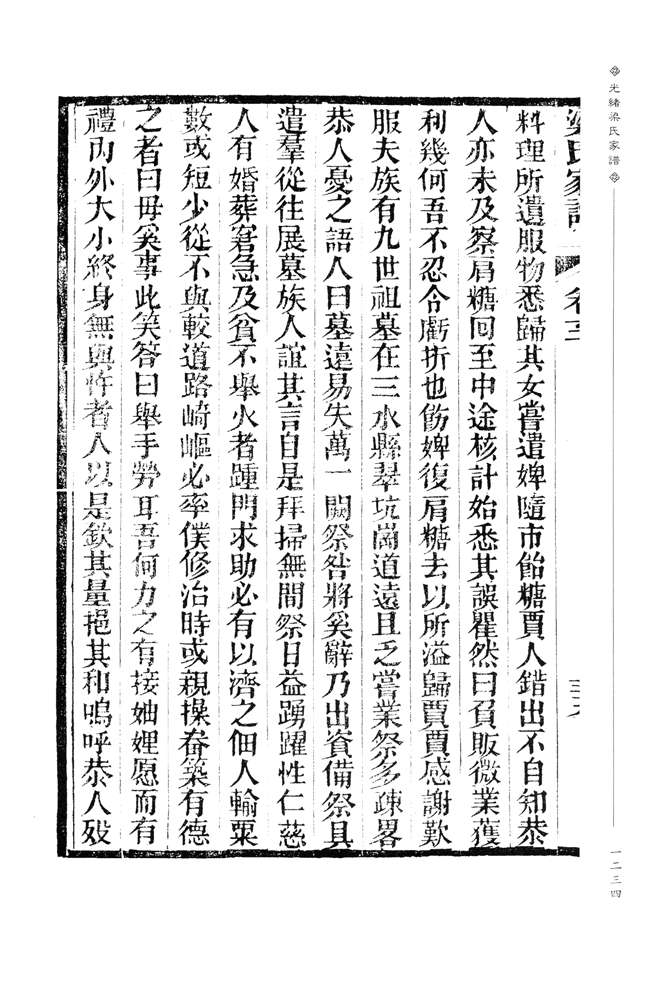 光緒梁氏家譜
一二三四
梁氏家譜 卷三
料理所遺服物悉歸其女嘗遣婢隨市飴糖賈人錯出不自知恭
人亦未及察肩糖回至中途核計始悉其誤瞿然曰負販微業獲
利幾何吾不忍令虧折也飭婢復肩糖去以所溢歸賈賈感謝歎
服夫族有九世祖墓在三水縣翠坑崗道遠且乏嘗業祭多疎畧
恭人憂之語人曰墓遠易失萬一闕祭咎將奚辭乃出資備祭具
遣羣從往展墓族人誼其言自是拜掃無間祭日益踴躍性仁慈
人有婚葬窘急及貧不舉火者踵門求助必有以濟之佃人輸粟
數或短少從不與較道路崎嶇必率僕修治時或親操畚築有德
之者曰毋奚事此笑答曰舉手勞耳吾何力之有接妯娌愿而有
禮內外大小終身無與忤者人以是欽其量挹其和嗚呼恭人歿